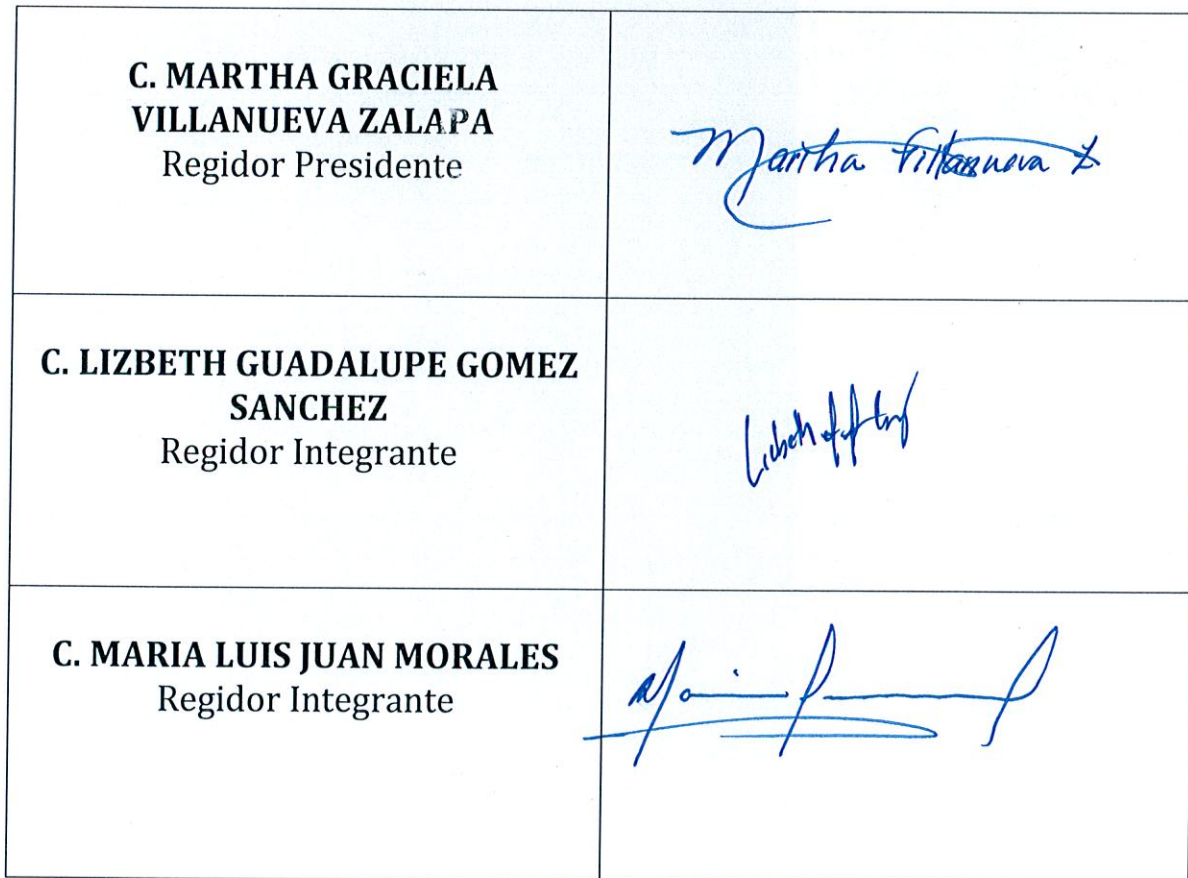 C. MARTHA GRACIELA
VILLANUEVA ZALAPA
Regidor Presidente
Martha Villanueva Z
C. LIZBETH GUADALUPE GOMEZ
SANCHEZ
Regidor Integrante
C. MARIA LUIS JUAN MORALES
Regidor Integrante